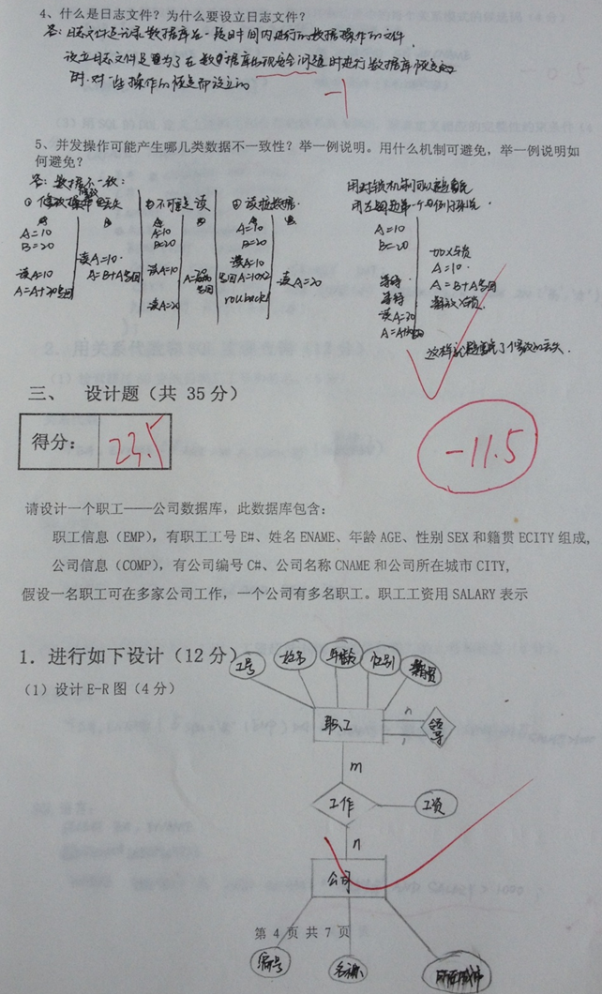 4、什么是日志文件？为什么要设立日志文件？
答：日志文件是记录数据库在一段时间内进行的数据操作的文件.
设立日志文件是为了在数据库出现安全问题时进行数据库恢复的
时.对一些操作的恢复而设立的
-1
5、并发操作可能产生哪几类数据不一致性？举一例说明。用什么机制可避免，举一例说明如
何避免？
答：数据不一致：
①修改丢失 ②不可重复读 ③读脏数据.
A=10
B=20
读A=10.
A=B+A写回
读A=10
A=A+20写回
A=10
B=20
读A=10
读A=20
A=10
B=20
读A=10
写回A=10×2
rollback
读A=20
用封锁机制可以避免
A=10
B=20
加X锁
A=10.
A=B+A写回
释放X锁.
等待
等待
读A=30
这样就避免了修改丢失.
三、 设计题（共 35 分）
得分： 23.5
-11.5
请设计一个职工——公司数据库，此数据库包含：
职工信息（EMP），有职工工号 E#、姓名 ENAME、年龄 AGE、性别 SEX 和籍贯 ECITY 组成，
公司信息（COMP），有公司编号 C#、公司名称 CNAME 和公司所在城市 CITY，
假设一名职工可在多家公司工作，一个公司有多名职工。职工工资用 SALARY 表示
1．进行如下设计（12 分）
工号 姓名 年龄 性别 籍贯
（1）设计 E-R 图（4 分）
职工 n 1 领导
m
工作 工资
n
公司
第 4 页 共 7 页
编号 名称 所在城市